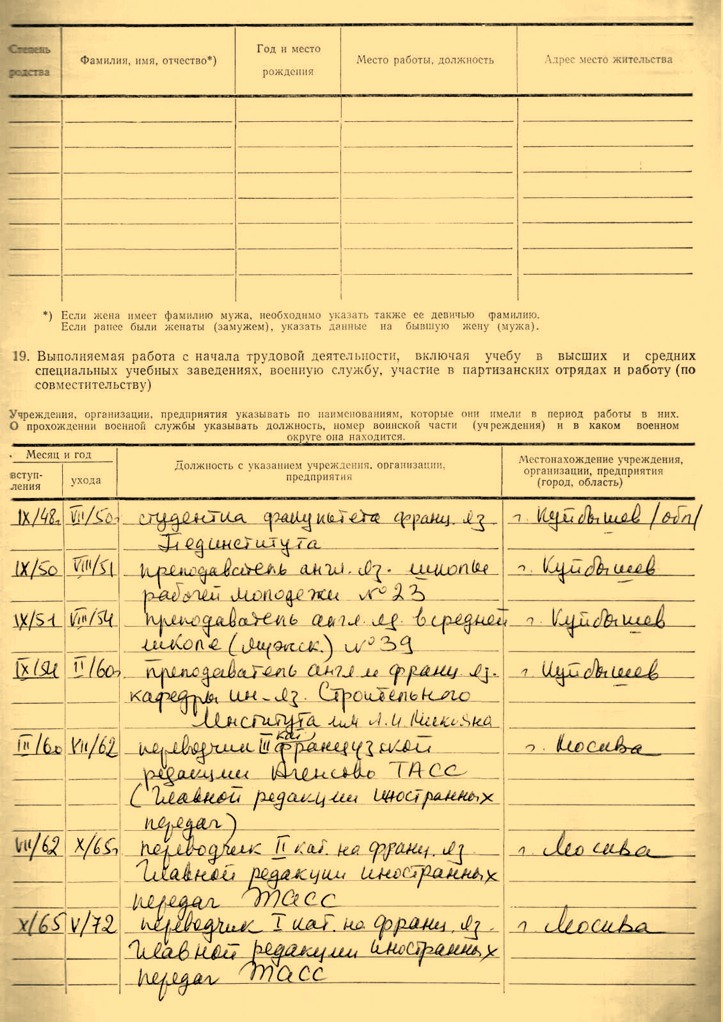 Степень родства
Фамилия, имя, отчество*)
Год и место рождения
Место работы, должность
Адрес место жительства
*) Если жена имеет фамилию мужа, необходимо указать также ее девичью фамилию.
Если ранее были женаты (замужем), указать данные на бывшую жену (мужа).
19. Выполняемая работа с начала трудовой деятельности, включая учебу в высших и средних
специальных учебных заведениях, военную службу, участие в партизанских отрядах и работу (по
совместительству)
Учреждения, организации, предприятия указывать по наименованиям, которые они имели в период работы в них.
О прохождении военной службы указывать должность, номер воинской части (учреждения) и в каком военном
округе она находится.
Месяц и год
вступ-
ления
ухода
Должность с указанием учреждения, организации,
предприятия
Местонахождение учреждения,
организации, предприятия
(город, область)
IX/48г. VII/50г. студентка факультета франц. яз г. Куйбышев (обл)
Пединститута
IX/50 VIII/51 преподаватель англ. яз. школы г. Куйбышев
рабочей молодежи №23
IX/51 VIII/54 преподаватель англ. яз. в средней г. Куйбышев
школе (мужск.) №39
IX/54 II/60г. преподаватель англ и франц яз. г. Куйбышев
кафедры ин-яз. Строительного
Института им А.И Микояна
III/60 VII/62 переводчик III кат французской г. Москва
редакции Агенсово ТАСС
(Главной редакции иностранных
передач)
VII/62 X/65г. переводчик II кат. на франц. яз г. Москва
Главной редакции иностранных
передач ТАСС
X/65 V/72 переводчик I кат. на франц. яз. г Москва
Главной редакции иностранных
передач ТАСС